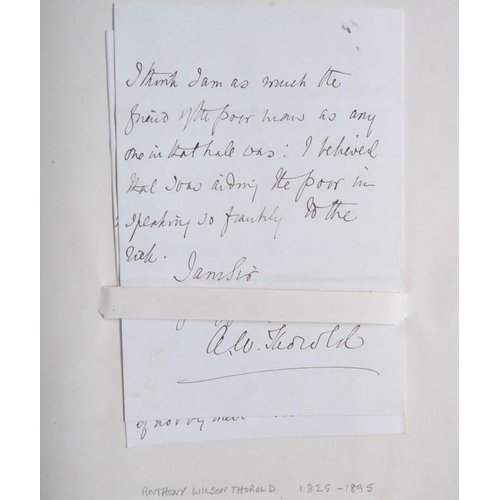 I think I am as much the
friend of the poor man as any
one in that hall was: I believed
that I was aiding the poor in
speaking so frankly to the
rich.
I am Sir
A.W. Thorold
of not by
ANTHONY WILSON THOROLD 1825-1895